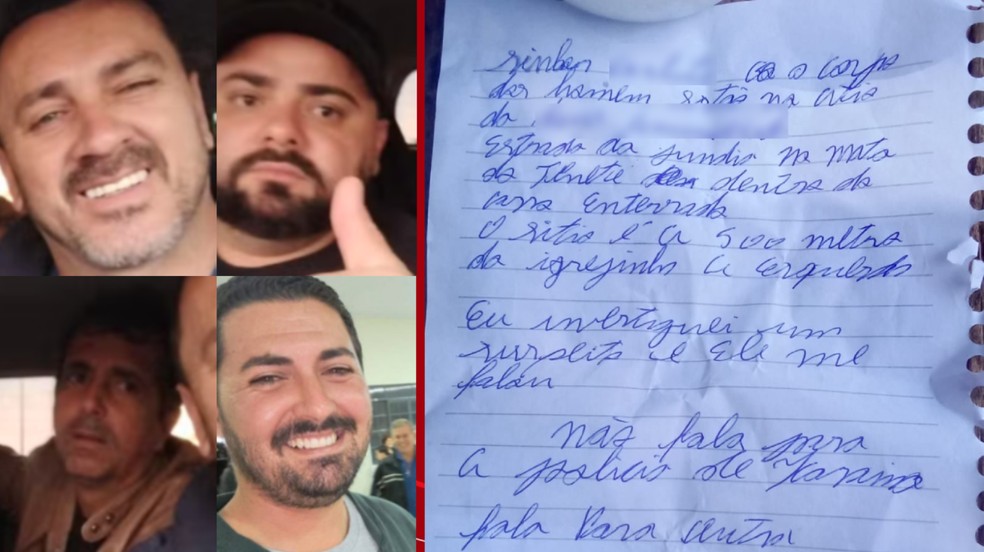 o corpo
dos homem sitio na area
da
Estrada da jundia na mata
da Tenete dentro da
area Enterrado
O sitio é a 500 metros
da igrejinha a Esquerda
Eu investiguei um
suspeito e Ele me
falou
Não fala para
a policia de Icaraima
fala Para outra